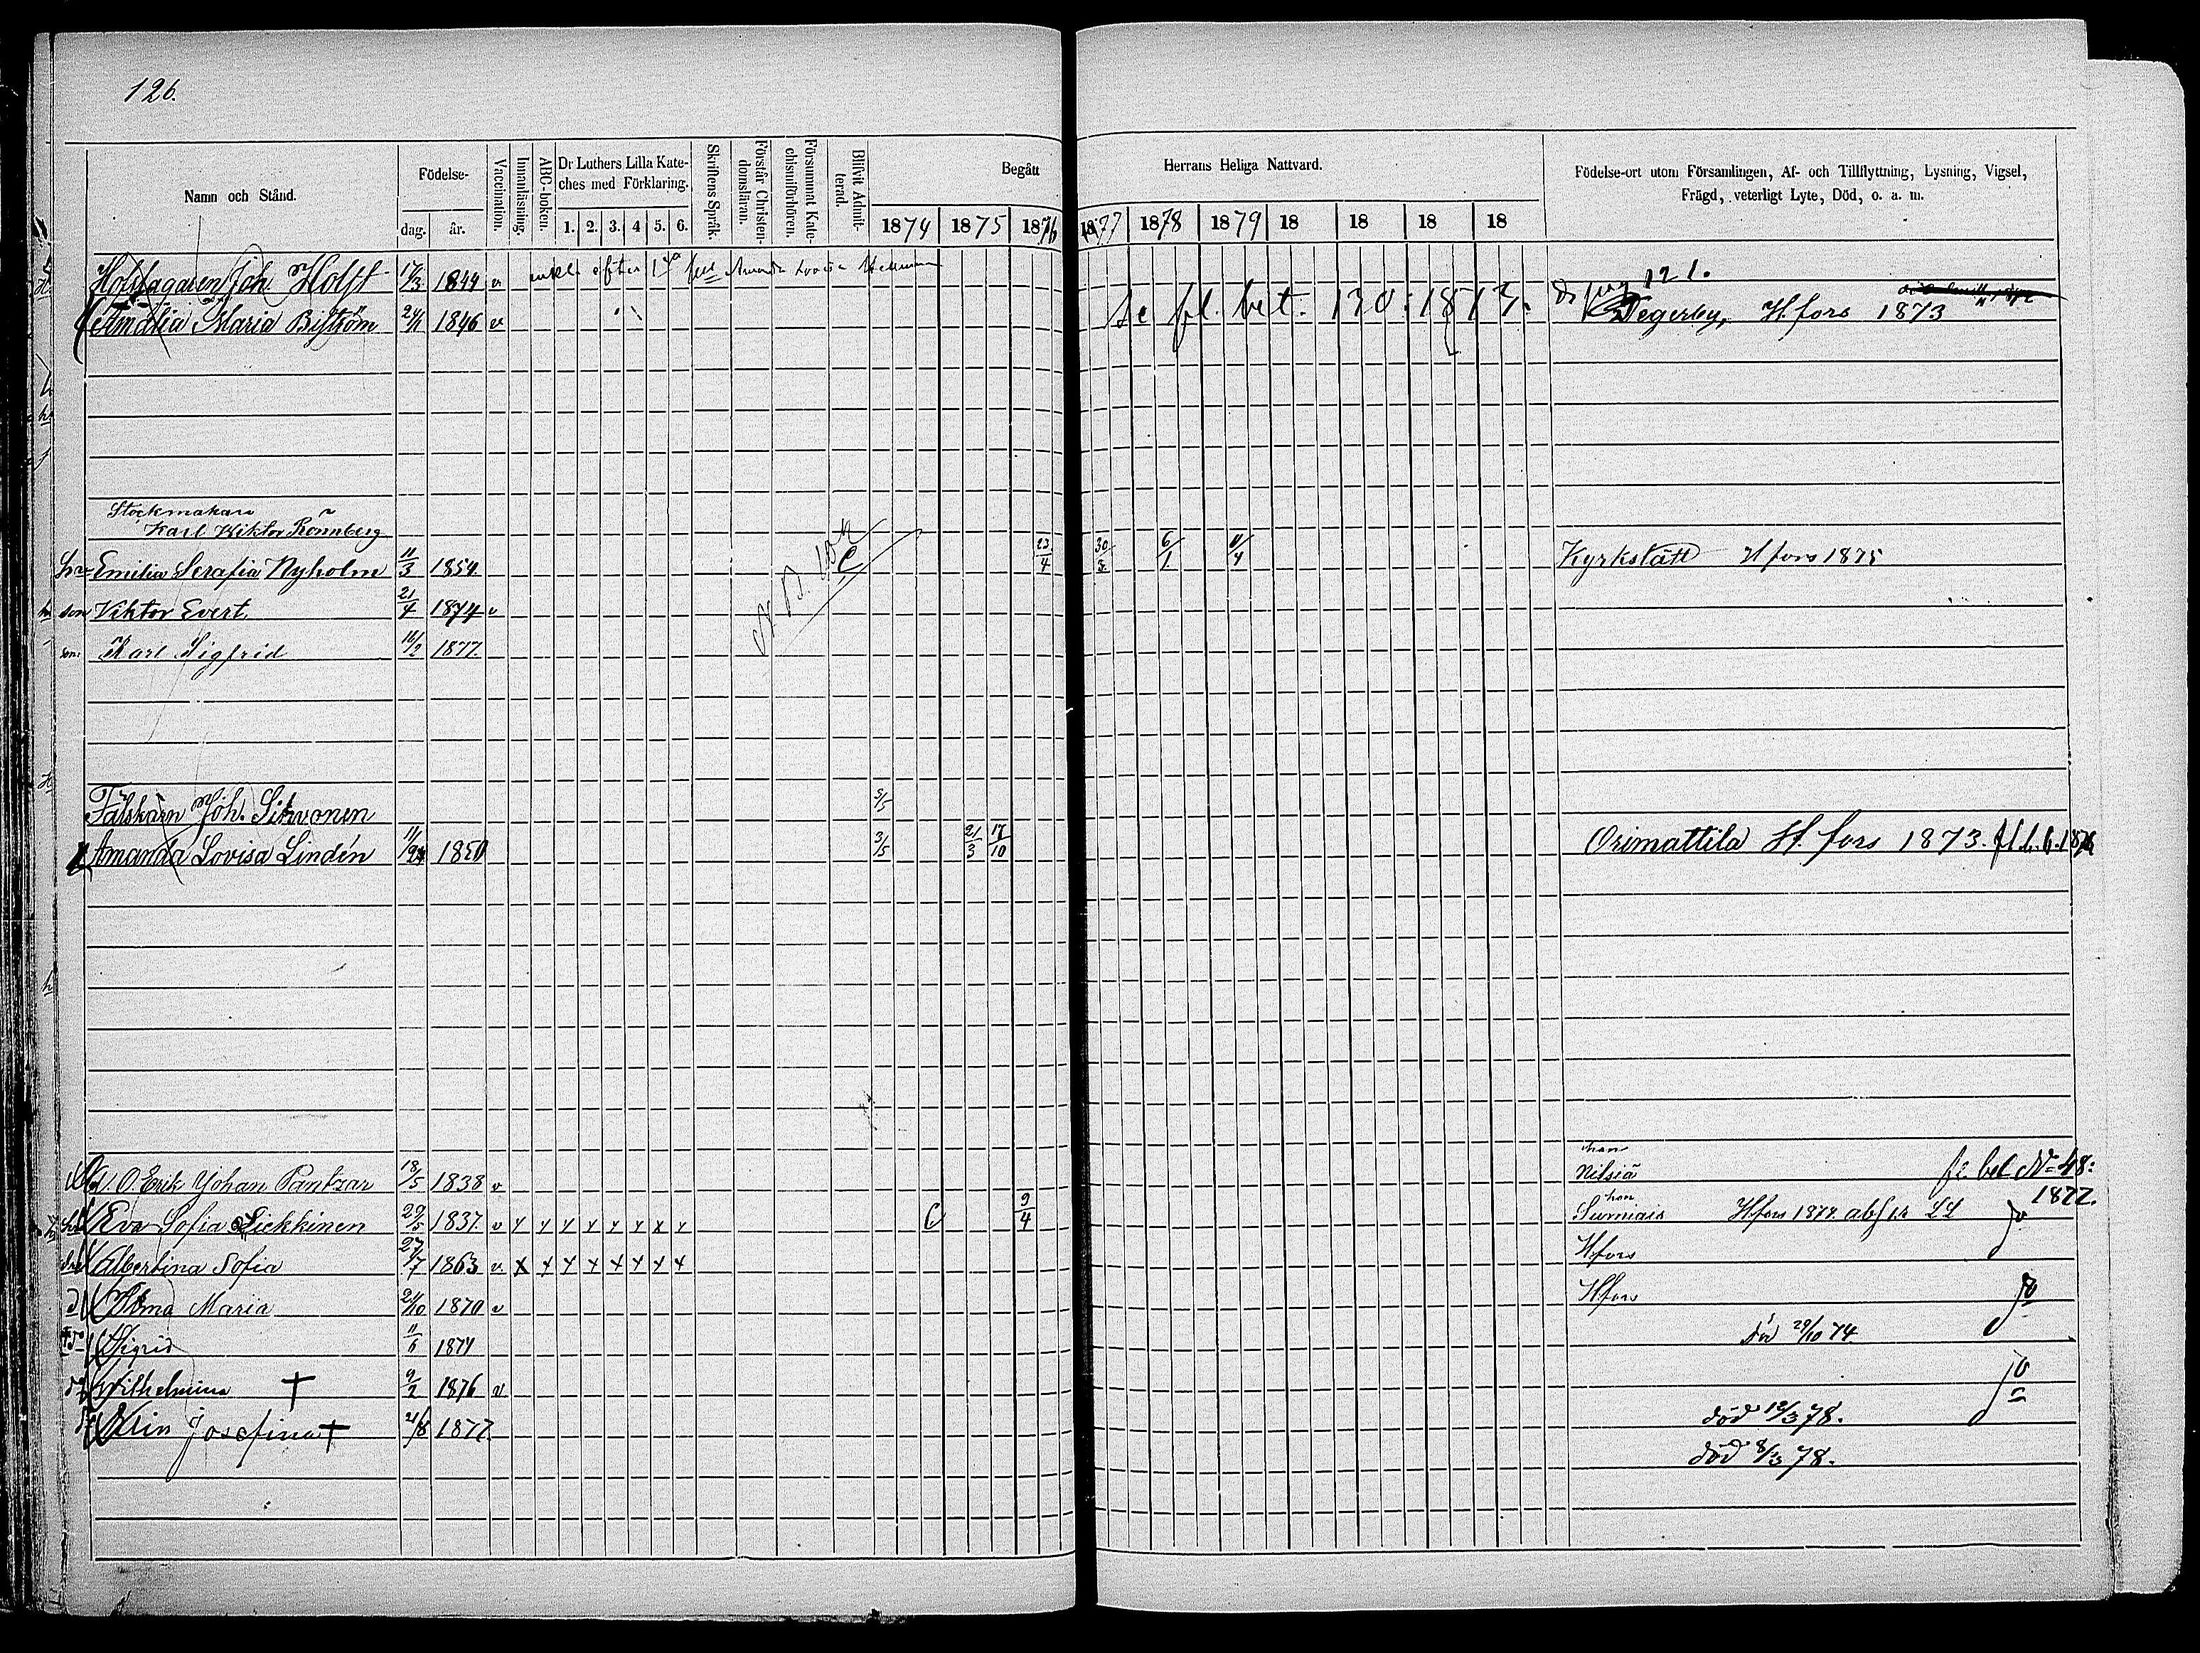 126.
Namn och Stånd.
Födelse-
dag. år.
Vaccination.
Innanläsning.
ABC-boken.
Dr Luthers Lilla Kate-
ches med Förklaring.
1. 2. 3. 4 5. 6.
Skriftens Språk.
Förstår Christen-
domsläran.
Försummat Kate-
chismiförhören.
Blifvit Admit-
terad.
Begått Herrans Heliga Nattvard.
1874 1875 1876 1877 1878 1879 18 18 18 18
Födelse-ort utom Församlingen, Af- och Tillflyttning, Lysning, Vigsel,
Frägd, veterligt Lyte, Död, o. a. m.
Joh. Holst 17/3 1844 v efter Lovisa 121.
Amalia Maria Biström 24/11 1846 v Se fl. bet. 130: 1873. Degerby, H.fors 1873
Stockmakare
Karl Viktor Rönnberg
Emilia Serafia Nyholm 11/3 1854 C 23/4 30/3 6/1 11/4 Kyrkslätt H fors 1875
son Viktor Evert 21/4 1874 v
son: Karl Sigfrid 11/2 1877.
Fältskärn Joh. Sihvonen 3/5
Amanda Lovisa Lindén 1850 3/5 21/3 17/10 Orimattila H. fors 1873. fl. b. 1876
Erik Johan Pantzar 18/5 1838 v han Nilsiä fl. bet No 48:
1877.
Eva Sofia Lickkinen 29/5 1837. v x x x x x x x x C 9/4 hon Sumiais Hfors 1874. abs LL
Albertina Sofia 27/7 1863 v x x x x x x x x Hfors
Alma Maria 21/10 1870 v Hfors
Sigrid 11/6 1874 död 29/10 74
Wilhelmina † 9/2 1876 v
Elin Josefina † 21/8 1877. död 12/3 78.
död 8/3 78.